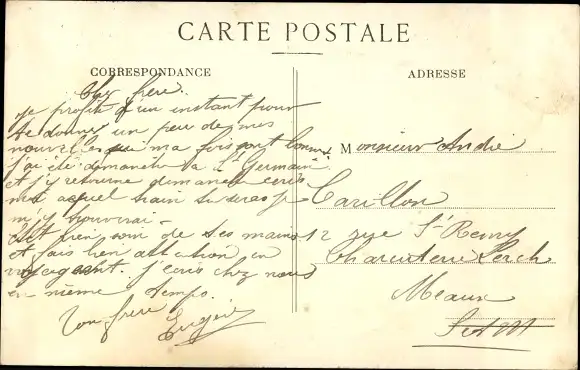 CARTE POSTALE
CORRESPONDANCE
ADRESSE
Cher frère.
Je profite d'un instant pour
te donner un peu de mes
nouvelles qui ma fois sont bonnes
j'ai été dimanche a St Germain
et j'y retourne dimanche
moi a quel train tu seras
m'y trouverai
bien soin de tes mains
et fais bien attention en
voyageant. J'écris chez nous
en même temps.
Ton frère Eugène
Monsieur André
Carillon
12 rue St Remy
Charcuterie Lerch
Meaux
S et M